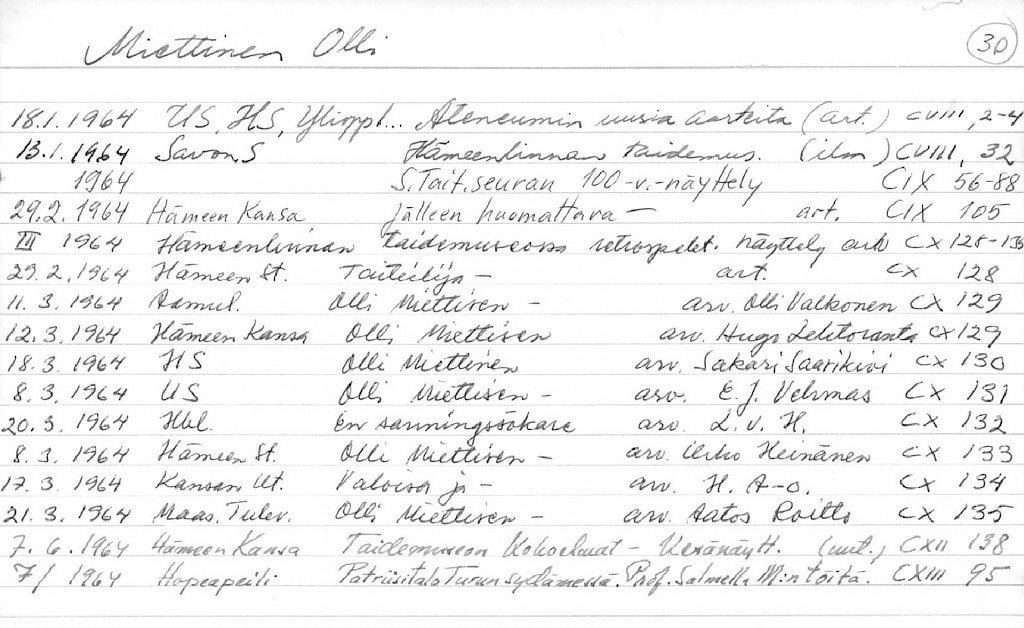 Miettinen Olli 30
18.1.1964 US, HS, Ylioppl... Ateneumin uusia aarteita (art.) CVIII, 2-4
13.1.1964 Savon S Hämeenlinnan taidemus. (ilm) CVIII, 32
1964 S.Tait.seuran 100-v.-näyttely CIX 56-88
29.2.1964 Hämeen Kansa Jälleen huomattava — art. CIX 105
III 1964 Hämeenlinnan taidemuseossa retrospekt. näyttely CX 128-135
29.2.1964 Hämeen St. Taiteilija — art. CX 128
11.3.1964 Aamul. Olli Miettisen — arv. Olli Valkonen CX 129
12.3.1964 Hämeen Kansa Olli Miettisen arv. Hugo Lehtoranta CX 129
18.3.1964 HS Olli Miettinen arv. Sakari Saarikivi CX 130
8.3.1964 US Olli Miettisen — arv. E.J. Vehmas CX 131
20.3.1964 Hbl. En sanningssökare arv. L.v.H. CX 132
8.3.1964 Hämeen St. Olli Miettisen — arv. Urho Heinänen CX 133
17.3.1964 Kansan Ut. Valoisa ja — arv. H. A-o. CX 134
21.3.1964 Maas. Tulev. Olli Miettisen — arv. Aatos Roitto CX 135
7.6.1964 Hämeen Kansa Taidemuseon kokoelmat — Kesänäytt. CXII 138
7/ 1964 Hopeapeili Patriisitalo Turun sydämessä. Prof. Salmella M:n töitä. CXIII 95